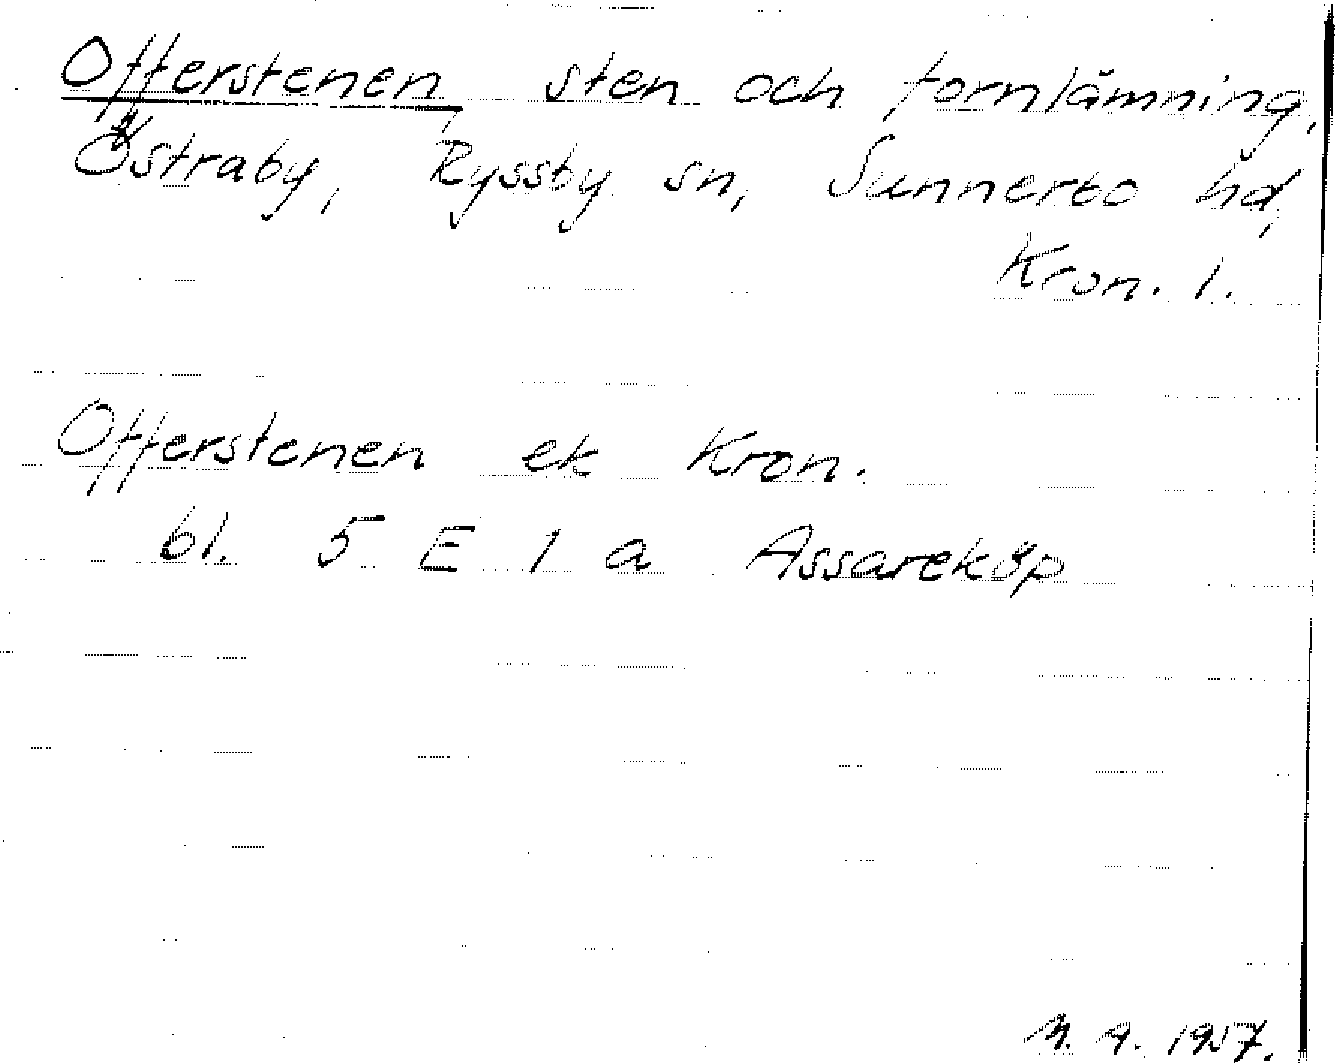 Offerstenen sten och fornlämning,
Östraby, Ryssby sn, Sunnerbo hd,
Kron. l.
Offerstenen ek Kron.
bl. 5 E 1 a Assareköp
A. 1957.